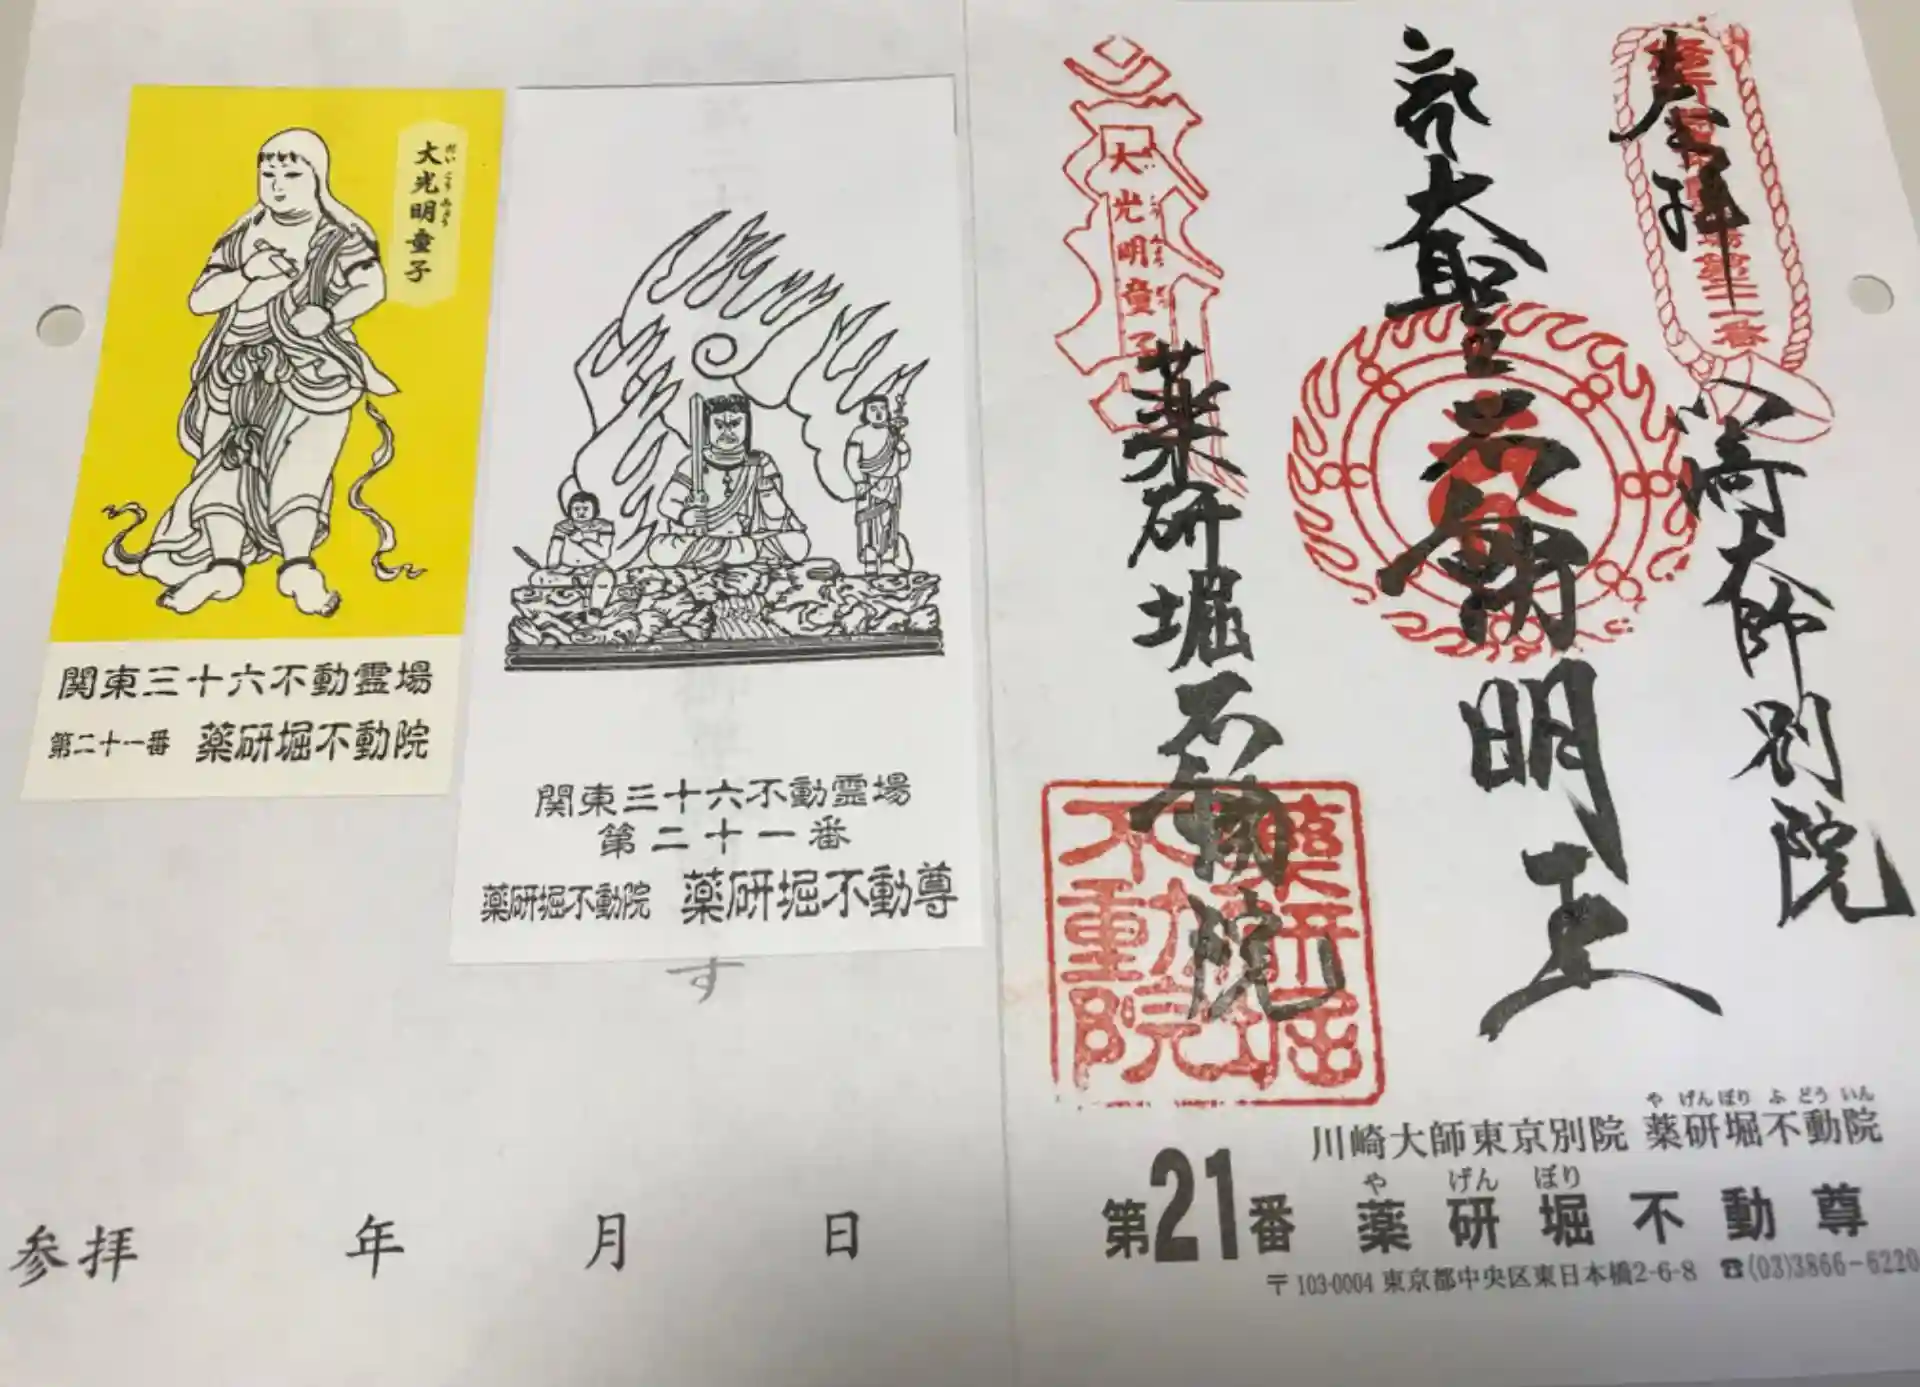 大光明童子
だいこうみょう
関東三十六不動霊場
第二十一番 薬研堀不動院
関東三十六不動霊場
第二十一番
薬研堀不動院 薬研堀不動尊
す
参拝 年 月 日
奉拝
川崎大師別院
大聖不動明王
大光明童子
薬研堀不動院
薬研堀
不動院
川崎大師東京別院 薬研堀不動院
や げん ぼり ふ どう いん
第21番 薬研堀不動尊
や げん ぼり
〒103-0004 東京都中央区東日本橋2-6-8 ☎(03)3866-6220